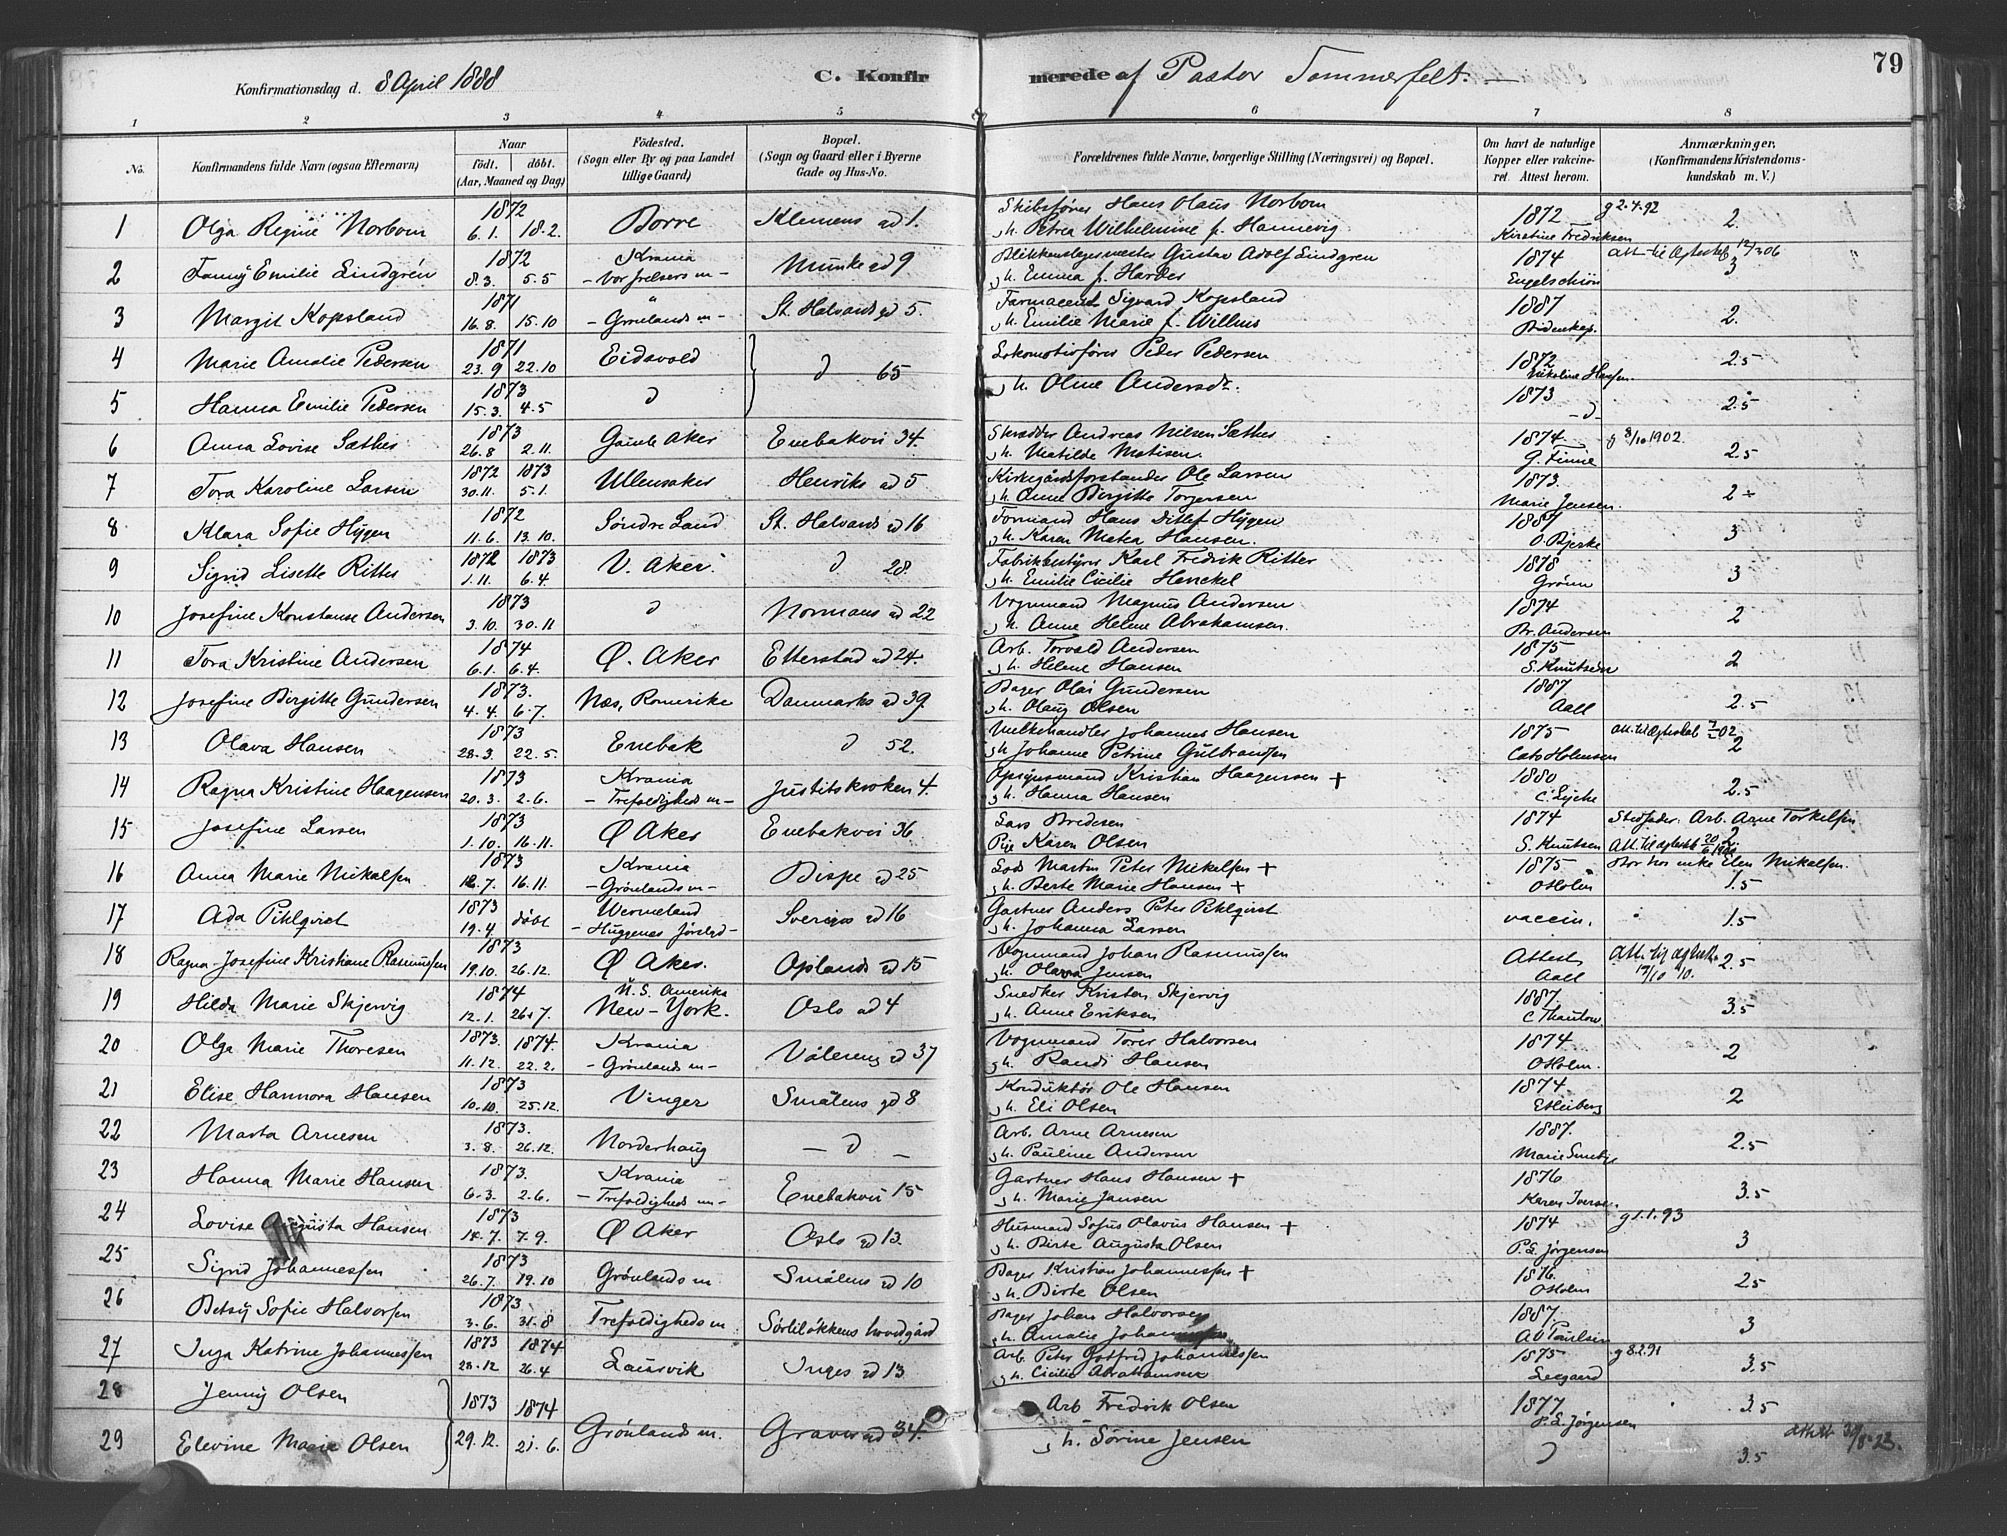 79
Konfirmationsdag d. 8 April 1888 C. Konfirmerede af Pastor Sommerfelt.
1 2 3 4 5 6 7 8
No. Konfirmandens fulde Navn (ogsaa Efternavn) Naar født. døbt. (Aar, Maaned og Dag) Födested. (Sogn eller By og paa Landet tillige Gaard) Bopæl. (Sogn og Gaard eller i Byerne Gade og Hus-No. Forældrenes fulde Navne, borgerlige Stilling (Næringsvei) og Bopæl. Om havt de naturlige Kopper eller vakcineret. Attest herom. Anmærkninger, (Konfirmandens Kristendomskundskab m. V.)
1 Olga Regine Norbom 1872 6.1. 18.2. Borre Klemens gd 1. Skibsfører Hans Olaus Norbom
h. Petrea Wilhelmine f. Hannevig 1872 Kirstine Fredriksen g 2.4.92 2.
2 Fanny Emilie Lindgrén 1872 8.3. 5.5 Krania - Vor frelsers m - Munke gd 9 Blikkenslagermester Gustav Adolf Lindgren
h. Emma f. Harder 1874 Engelschiøn Att. til Ægteskb 12/3 06 3
3 Margit Kopsland 1871 16.8. 15.10 " - Grønlands m - St. Halvards gd 5. Farmaceut Sigvard Kopsland
h. Emilie Marie f. Wilhus 1887 Bidenkap. 2.
4 Marie Amalie Pedersen 1871 23.9 22.10 Eidsvold d 65 Lokomotivfører Peder Pedersen 1872 Nikoline Hansen. 2.5
5 Hanna Emilie Pedersen 1873 15.3. 4.5 d h. Oline Andersdr. 1873 - d - 2.5
6 Anna Lovise Sæther 1873 26.8 2.11. Gamle Aker Enebakvei 34. Skrædder Andreas Nilsen Sæther
h. Matilde Matisen. 1874. G. Finne g 8/10 1902. 2.5
7 Tora Karoline Larsen 1872 1873 30.11. 5.1. Ullensaker Henriks gd 5 Kirkegårdsforstander Ole Larsen
h. Anne Birgitte Torgersen 1873. Marie Jensen. 2
8 Klara Sofie Hÿgen 1872 11.6. 13.10. Söndre Land St. Halvards gd 16 Formand Hans Ditlef Hÿgen
h. Karen Matea Hansen. 1887 O. Bjerke 3
9 Sigrid Lisette Ritter 1872 1873 1.11. 6.4. V. Aker. d 28. Fabrikbestyrer Karl Fredrik Ritter
h. Emilie Cicilie Henckel 1878 Grønn 3
10 Josefine Konstanse Andersen 1873 3.10. 30.11 d Normans gd 22 Vognmand Magnus Andersen
h. Anne Helene Abrahamsen. 1874 Br. Andersen 2
11 Tora Kristine Andersen 1874 6.1. 6.4. Ø. Aker Etterstad gd 24. Arb. Torvald Andersen
h. Helene Hansen 1875 S. Knutsen 2
12 Josefine Birgitte Gundersen 1873. 4.4. 6.7. Næs, Romerike Danmarks gd 39. Bager Olai Gundersen
h. Olaug Olsen 1887 Aall 2.5
13 Olava Hansen 1873 28.3. 22.5. Enebak d 52. Melkehandler Johannes Hansen
h. Johanne Petrine Gulbrandsen 1875 Cato Holmsen Att. til Ægteskab 02. 2
14 Ragna Kristine Haagensen 1873 20.3. 2.6. Krania - Trefoldigheds m - Justitskroken 4. Opsynsmand Kristian Haagensen +
h. Hanna Hansen 1880 C. Lycke 2.5
15 Josefine Larsen 1873 1.10. 16.11. Ø Aker Enebakvei 36 Lars Bredesen
Pige Karen Olsen 1874 S. Knutsen Stedfader. Arb. Arne Torkelsen
Att. til ægteskb 20/6 2
16 Anna Marie Mikalsen 1873 12.7. 16.11. Krania - Grönlands m - Bispe gd 25 Lods Martin Peter Mikelsen +
h. Berte Marie Hansen + 1875 O Holm Bor hos enke Elen Mikalsen. 1.5
17 Ada Pihlqvist 1873 19.4. döbt Wermeland - Huggenæs förslgd - Sverigs gd 16 Gartner Anders Peter Pihlqvist
h. Johanna Larsen vaccin. 1.5
18 Ragna Josefine Kristiane Rasmussen 1873 19.10. 26.12. Ø Aker. Oplands gd 15 Vognmand Johan Rasmussen
h. Olava Jensen Attest Aall Att. til ægtesk. 10. 2.5
19 Hilda Marie Skjervig 1874 12.1. 26.7. U.S. Amerika New-York. Oslo gd 4 Snedker Kristen Skjervig
h. Anne Eriksen 1887. C. Thaulow. 3.5
20 Olga Marie Thoresen 1873. 1874. 11.12. 22.2. Krania - Grönlands m - Vålereng gd 37 Vognmand Torer Halvorsen
h. Randi Hansen 1874 O Holm. 2
21 Elise Hannora Hansen 1873 10.10. 25.12. Vinger Smålens gd 8 Konduktör Ole Hansen
h. Eli Olsen 1874. E Heiberg 2
22 Marta Arnesen 1873. 3.8. 26.12. Norderhaug - d - Arb. Arne Arnesen
h. Pauline Andersen 1887. Marie Smeby 2.5
23 Hanna Marie Hansen 1873. 6.3. 2.6. Krania - Trefoldigheds m - Enebakvei 15 Gartner Hans Hansen +
h. Marie Jansen 1876 Karen Iversen 3.5
24 Lovise Augusta Hansen 1873 14.7. 7.9. Ø Aker Oslo gd 13. Husmand Sofus Olavus Hansen +
h. Birte Augusta Olsen 1874 P.L. Jørgensen g 1.1.93 3
25 Sigrid Johannessen 1873 26.7. 19.10 Grönlands m. Smålens gd 10 Bager Kristian Johannessen +
h. Birte Olsen 1876. O Holm 2.5
26 Betsÿ Sofie Halvorsen 1873 3.6. 31.8 Trefoldigheds m Sörliløkkens hovedgård Bager Johan Halvorsen
h. Amalie Johannessen 1887. A O Paulsen 3
27 Inga Katrine Johannessen 1873 1874 28.12 26.4 Laurvik Inges gd 13 Arb. Peter Gotfred Johannessen
h. Cicilie Abrahamsen 1875 Seegaard g 8.2.91 3.5
28 Jenny Olsen 1873 1874 29.12. 21.6. Grönland m. Graver gd 34. Arb Fredrik Olsen 1877 P.L. Jørgensen 3.5
29 Elevine Marie Olsen h. Sörine Jensen d 30/8-23. 3.5